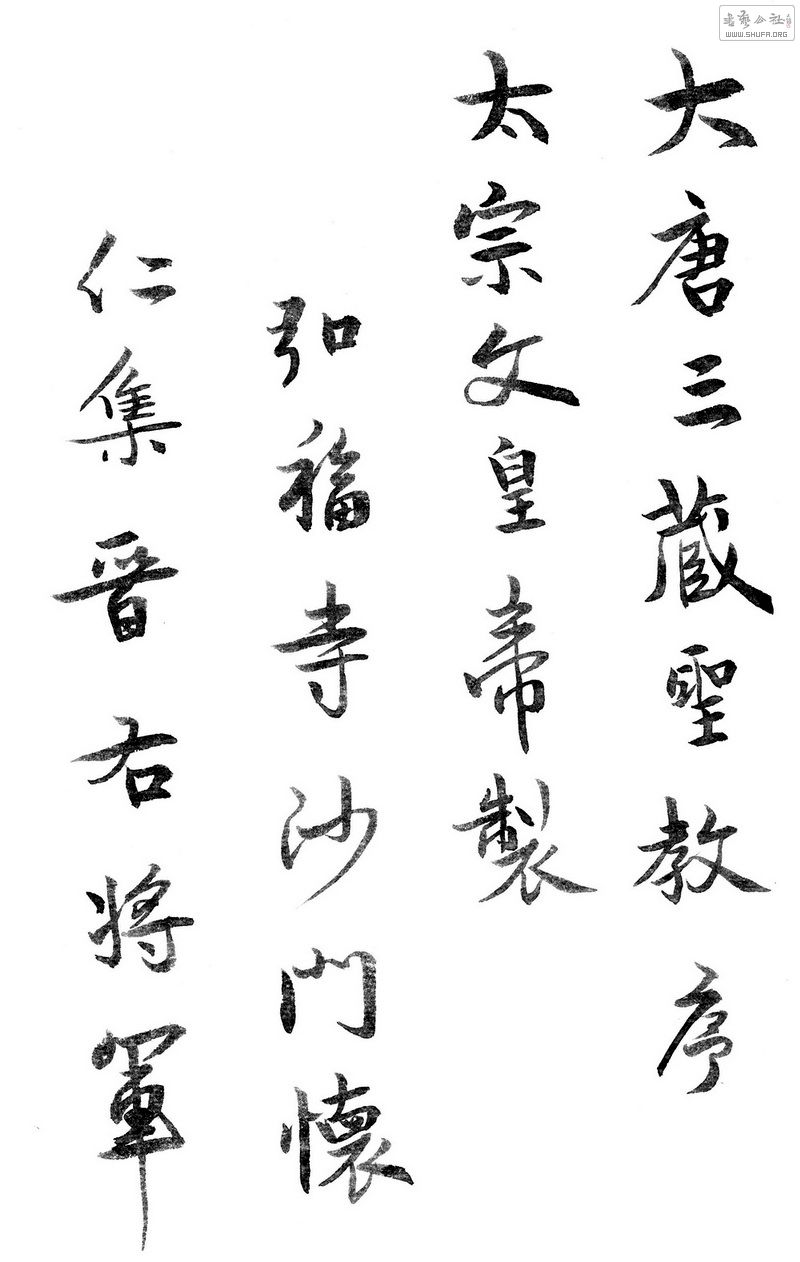 大唐三藏聖教序
太宗文皇帝製
弘福寺沙門懷
仁集晉右將軍
書藝公社
WWW.SHUFA.ORG